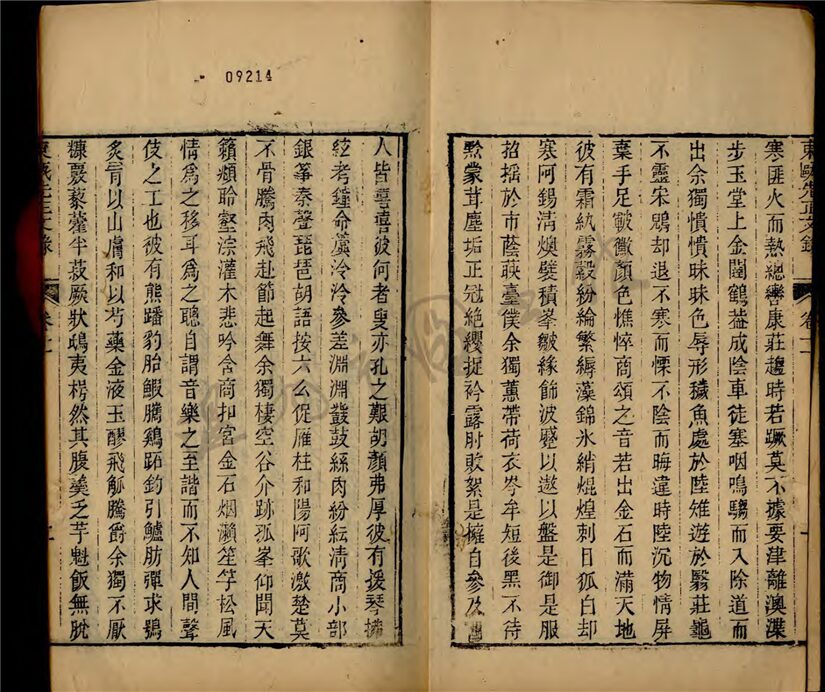 09214
東甌先正文錄 卷十二
寒匪火而熱總轡康莊趨時若蹶莫不據要津離澳渫
步玉堂上金闥鶴葢成陰車徒塞咽鳴騶而入除道而
出余獨憒憒昧昧色辱形穢魚處於陸雉遊於翳莊龜
不靈宋鷁却退不寒而慄不陰而晦違時陸沉物情屏
棄手足皸黴顏色憔悴商頌之音若出金石而滿天地
彼有霜紈霧縠紛綸繁縟藻錦氷綃焜煌刺日狐白却
寒阿錫淸燠襞積峯皺緣飾波蹙以遨以盤是御是服
招搖於市蔭蔽臺僕余獨蕙帶荷衣岑牟短後黑不待
黔蒙茸塵垢正冠絶纓捉衿露肘敗絮是擁自參及
人皆喜喜彼何者叟亦孔之艱胡顏弗厚彼有援琴搏
絃考鐘命虡泠泠參差淵淵鼗鼓絲肉紛紜淸商小部
銀箏秦聲琵琶胡語按六么促雁柱和陽阿歌激楚莫
不骨騰肉飛赴節起舞余獨棲空谷介跡孤峯仰聞天
籟頫聆壑淙灌木悲吟含商扣宮金石烟瀨笙竽松風
情爲之移耳爲之聰自謂音樂之至諧而不知人間聲
伎之工也彼有熊蹯豹胎蝦臇鷄跖釣引鱸肪彈求鴞
炙肓以山膚和以芍藥金液玉醪飛觚騰爵余獨不厭
糠覈藜藿半菽厥狀鴟夷枵然其腹羮乏芋魁飯無脫
東甌先正文錄 卷十二